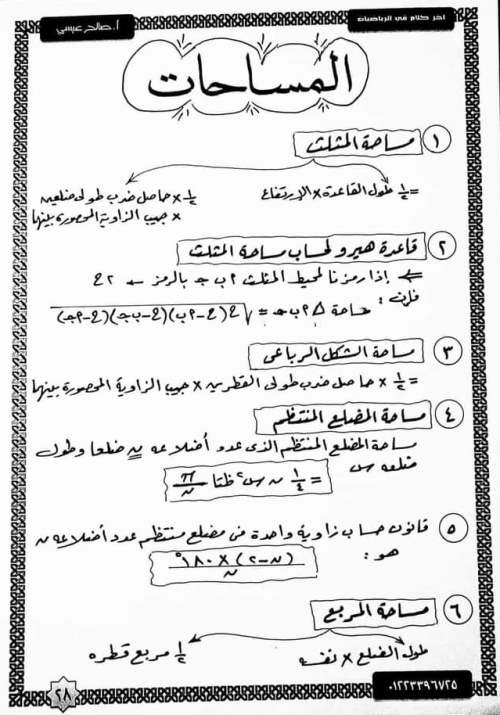 آخر كلام في الرياضيات
أ. صالح عيسى
المساحات
١ مساحة المثلث
= ١/٢ طول القاعدة × الإرتفاع
١/٢ × حاصل ضرب طولى ضلعين
× جيب الزاوية المحصورة بينها
٢ قاعدة هيرو لحساب مساحة المثلث
إذا رمزنا لمحيط المثلث ٢ ب ح بالرمز ← ٢ع
فإن:
مساحة △ ٢ ب ح = √ع(ع-٢ب)(ع-ب ح)(ع-٢ح)
٣ مساحة الشكل الرباعى
= ١/٢ × حاصل ضرب طولى القطرين × جيب الزاوية المحصورة بينها
٤ مساحة المضلع المنتظم
مساحة المضلع المنتظم الذى عدد أضلاعه ن ضلعا وطول
ضلعه س
= ١/٤ ن س٢ ظتا π/ن
٥ قانون حساب زاوية واحدة فى مضلع منتظم عدد أضلاعه ن
هو:
(ن-٢) × ١٨٠°/ن
٦ مساحة المربع
طول الضلع × نفسه
١/٢ مربع قطره
٢٨
٠١٢٢٣٣٩٦٧٢٥